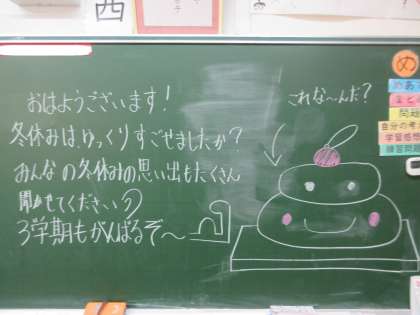 西
おはようございます!
冬休みは、ゆっくりすごせましたか?
みんなの冬休みの思い出もたくさん
聞かせてください♪
3学期もがんばるぞ〜
これな〜んだ?
め
めあ
まと
問題
自分の考
学習感想
練習問題